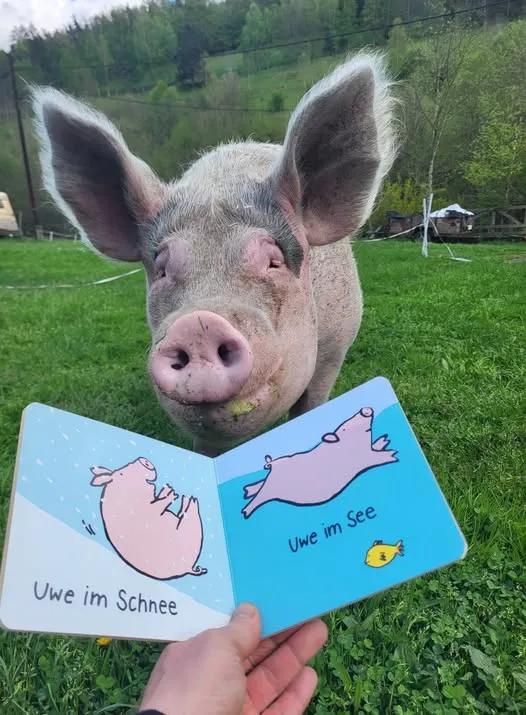 Uwe im Schnee
Uwe im See